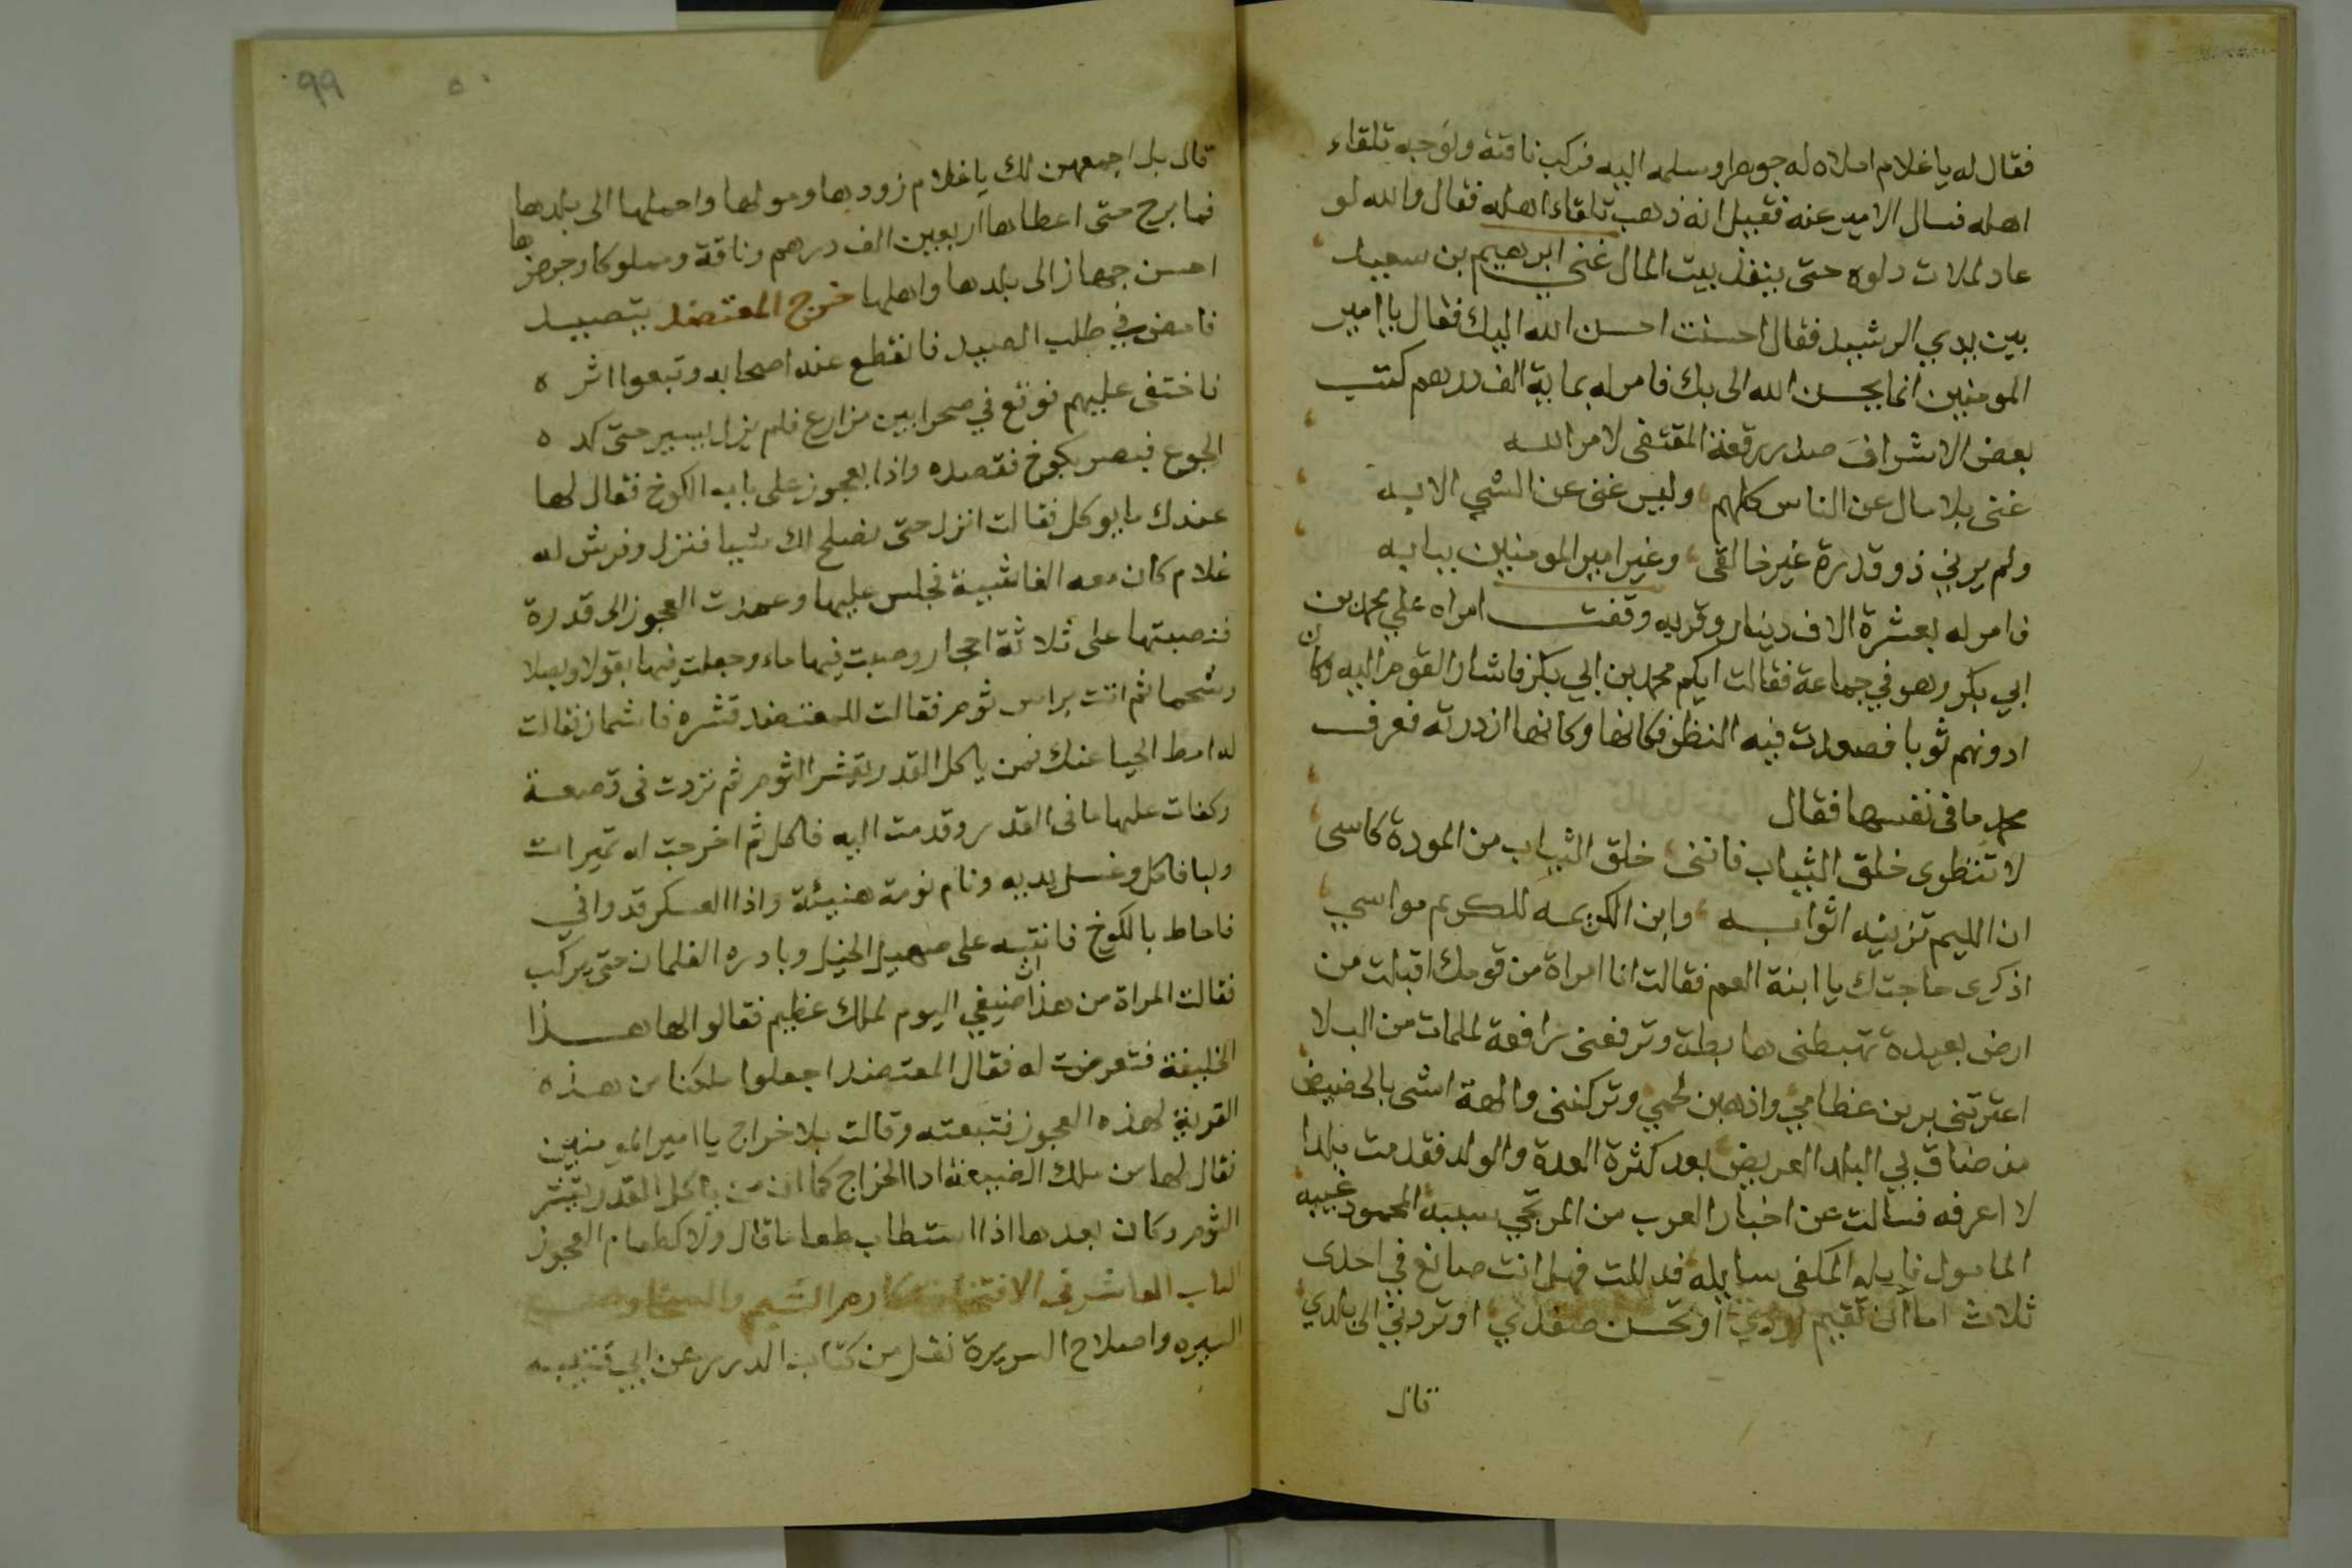 فقال له يا غلام املاه له جوهرا وسلمه اليه فركب ناقته وتوجه تلقاء
اهله فسال الامير عنه فقيل انه ذهب تلقاء اهله فقال والله لو
عاد لملات دلوه حتى ينفذ بيت المال غنى ابرهيم بن سعيد
بين يدي الرشيد فقال احسنت احسن الله اليك فقال يا امير
المومنين انما يحسن الله الى بك فامر له بماية الف درهم كتب
بعض الاشراف صدر رقعة المقتفى لامر الله
غنى بلا مال عن الناس كلهم وليس غنى عن الشي الا به
ولم يرني ذو قدرة غير خالقى وغير امير المومنين ببابه
فامر له بعشرة الاف دينار وقربه وقفت امراه علي محمد بن
ابي بكر وهو في جماعة فقالت ايكم محمد بن ابي بكر فاشار القوم اليه وكان
ادونهم ثوبا فصعدت فيه النظر فكانها وكانها ازدرته فعرف
محمد ما في نفسها فقال
لا تنظرى خلق الثياب فاننى خلق الثياب من المودة كاسى
ان الليم تزينه اثوابه وابن الكريمه للكريم مواسي
اذكرى حاجتك يا ابنة العم فقالت انا امراة من قومك اقبلت من
ارض بعيدة تهبطنى هابطة وترفعنى رافعة لملمات من البلا
اعترتنى برين عظامي واذهبن لحمي وتركننى والهة امشى بالحضيض
من ضاق بي البلد العريض بعد كثرة العدة والولد فقدمت بلدا
لا اعرفه فسالت عن اخبار العرب من المرتجي سيبه المحمود غيبه
المامول نايله المكفى سايله فدللت فهل انت صانع في احدى
ثلاث اما ان تقيم اودي او تحسن صفدي او تردني الى بلدي
قال
99
قال بل اجمعهن لك يا غلام زودها ومولها واحملها الى بلدها
فما برح حتى اعطاها اربعين الف درهم وناقة ومملوكا وجهزها
احسن جهاز الى بلدها واهلها خرج المعتضد يتصيد
فامعن في طلب الصيد فانقطع عنه اصحابه وتبعوا اثره
فاختفى عليهم فوقع في صحرا بين مزارع فلم يزل يسير حتى كده
الجوع فبصر بكوخ فقصده واذا بعجوز على باب الكوخ فقال لها
عندك ما يوكل فقالت انزل حتى نصلح لك شيا فنزل وفرش له
غلام كان معه الغاشية فجلس عليها وعمدت العجوز الى قدرة
فنصبتها على ثلاثة احجار وصبت فيها ماء وجعلت فيها بقولا وبصلا
وشحما ثم اتت براس ثوم فقالت للمعتضد قشره فاشماز فقالت
له امط الحيا عنك فمن ياكل القدر يقشر الثوم ثم ثردت في قصعة
وكفات عليها ما في القدر وقدمت اليه فاكل ثم اخرجت له تميرات
ولبا فاكل وغسل يديه ونام نومة هنيئة واذا العسكر قد وافي
فاحاط بالكوخ فانتبه على صهيل الخيل وبادره الغلمان حتى يركب
فقالت المراة من هذا ان ضيفي اليوم لملك عظيم فقالوا لها هذا
الخليفة فتعرضت له فقال المعتضد اجعلوا ملكنا من هذه
القرية لهذه العجوز فتبعته وقالت بلا خراج يا امير المومنين
فقال لها من ملك الضيعة ادا الخراج كما ان من ياكل القدر يقشر
الثوم وكان بعدها اذا استطاب طعاما قال ولا كطعام العجوز
الباب العاشر في الافتخار بمكارم الشيم
السيره واصلاح السريرة نقل من كتاب الدرر عن ابي قتيبه